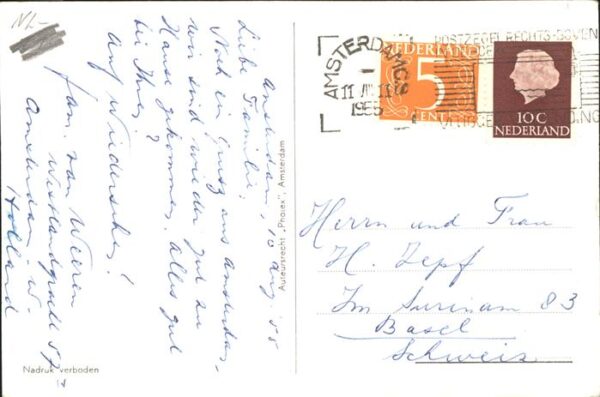 NL-
Amsterdam, 10 Aug. 55
Liebe Familie!
Noch ein Grusz aus Amsterdam,
wir sind wieder gut zu
Hause gekommen. Alles gut
bei Ihnen?
Auf Wiedersehen!
fam. van Weeren
Westlandgracht 57
Amsterdam W.
Holland
Auteursrecht „Photex", Amsterdam
Nadruk verboden
AMSTERDAM CS
11 VIII 11
1955
POSTZEGEL RECHTS-BOVEN
NEDERLAND
5
CENT
10 C
NEDERLAND
Herrn und Frau
H. Zepf
Im Surinam 83
Basel
Schweiz